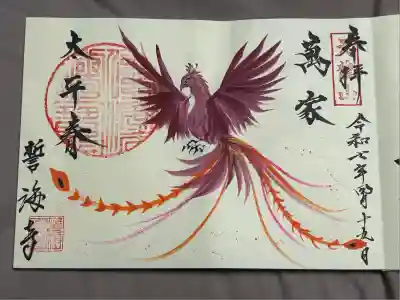 奉拝
令和七年四月十九日
萬家
太平春
誓海寺